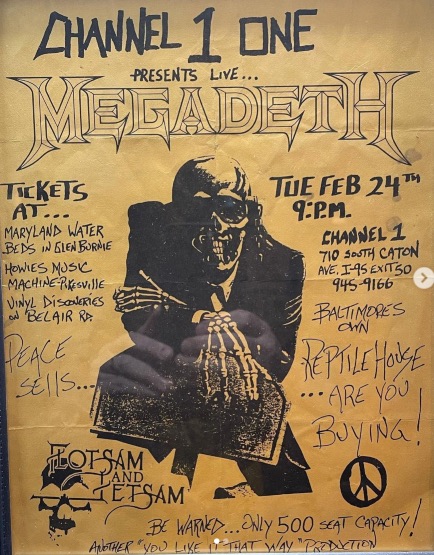 CHANNEL 1 ONE
PRESENTS LIVE...
MEGADETH
TICKETS
AT...
MARYLAND WATER
BEDS IN GLEN BURNIE
HOWIES MUSIC
MACHINE-PIKESVILLE
VINYL DISCOVERIES
ON BELAIR RD.
TUE FEB 24TH
9:P.M.
CHANNEL 1
710 SOUTH CATON
AVE. I-95 EXIT 50
945-9166
BALTIMORES
OWN
REPTILE HOUSE
PEACE
SELLS...
...ARE YOU
BUYING!
FLOTSAM
AND
JETSAM
BE WARNED...ONLY 500 SEAT CAPACITY!
ANOTHER "YOU LIKE IT THAT WAY" PRODUCTION